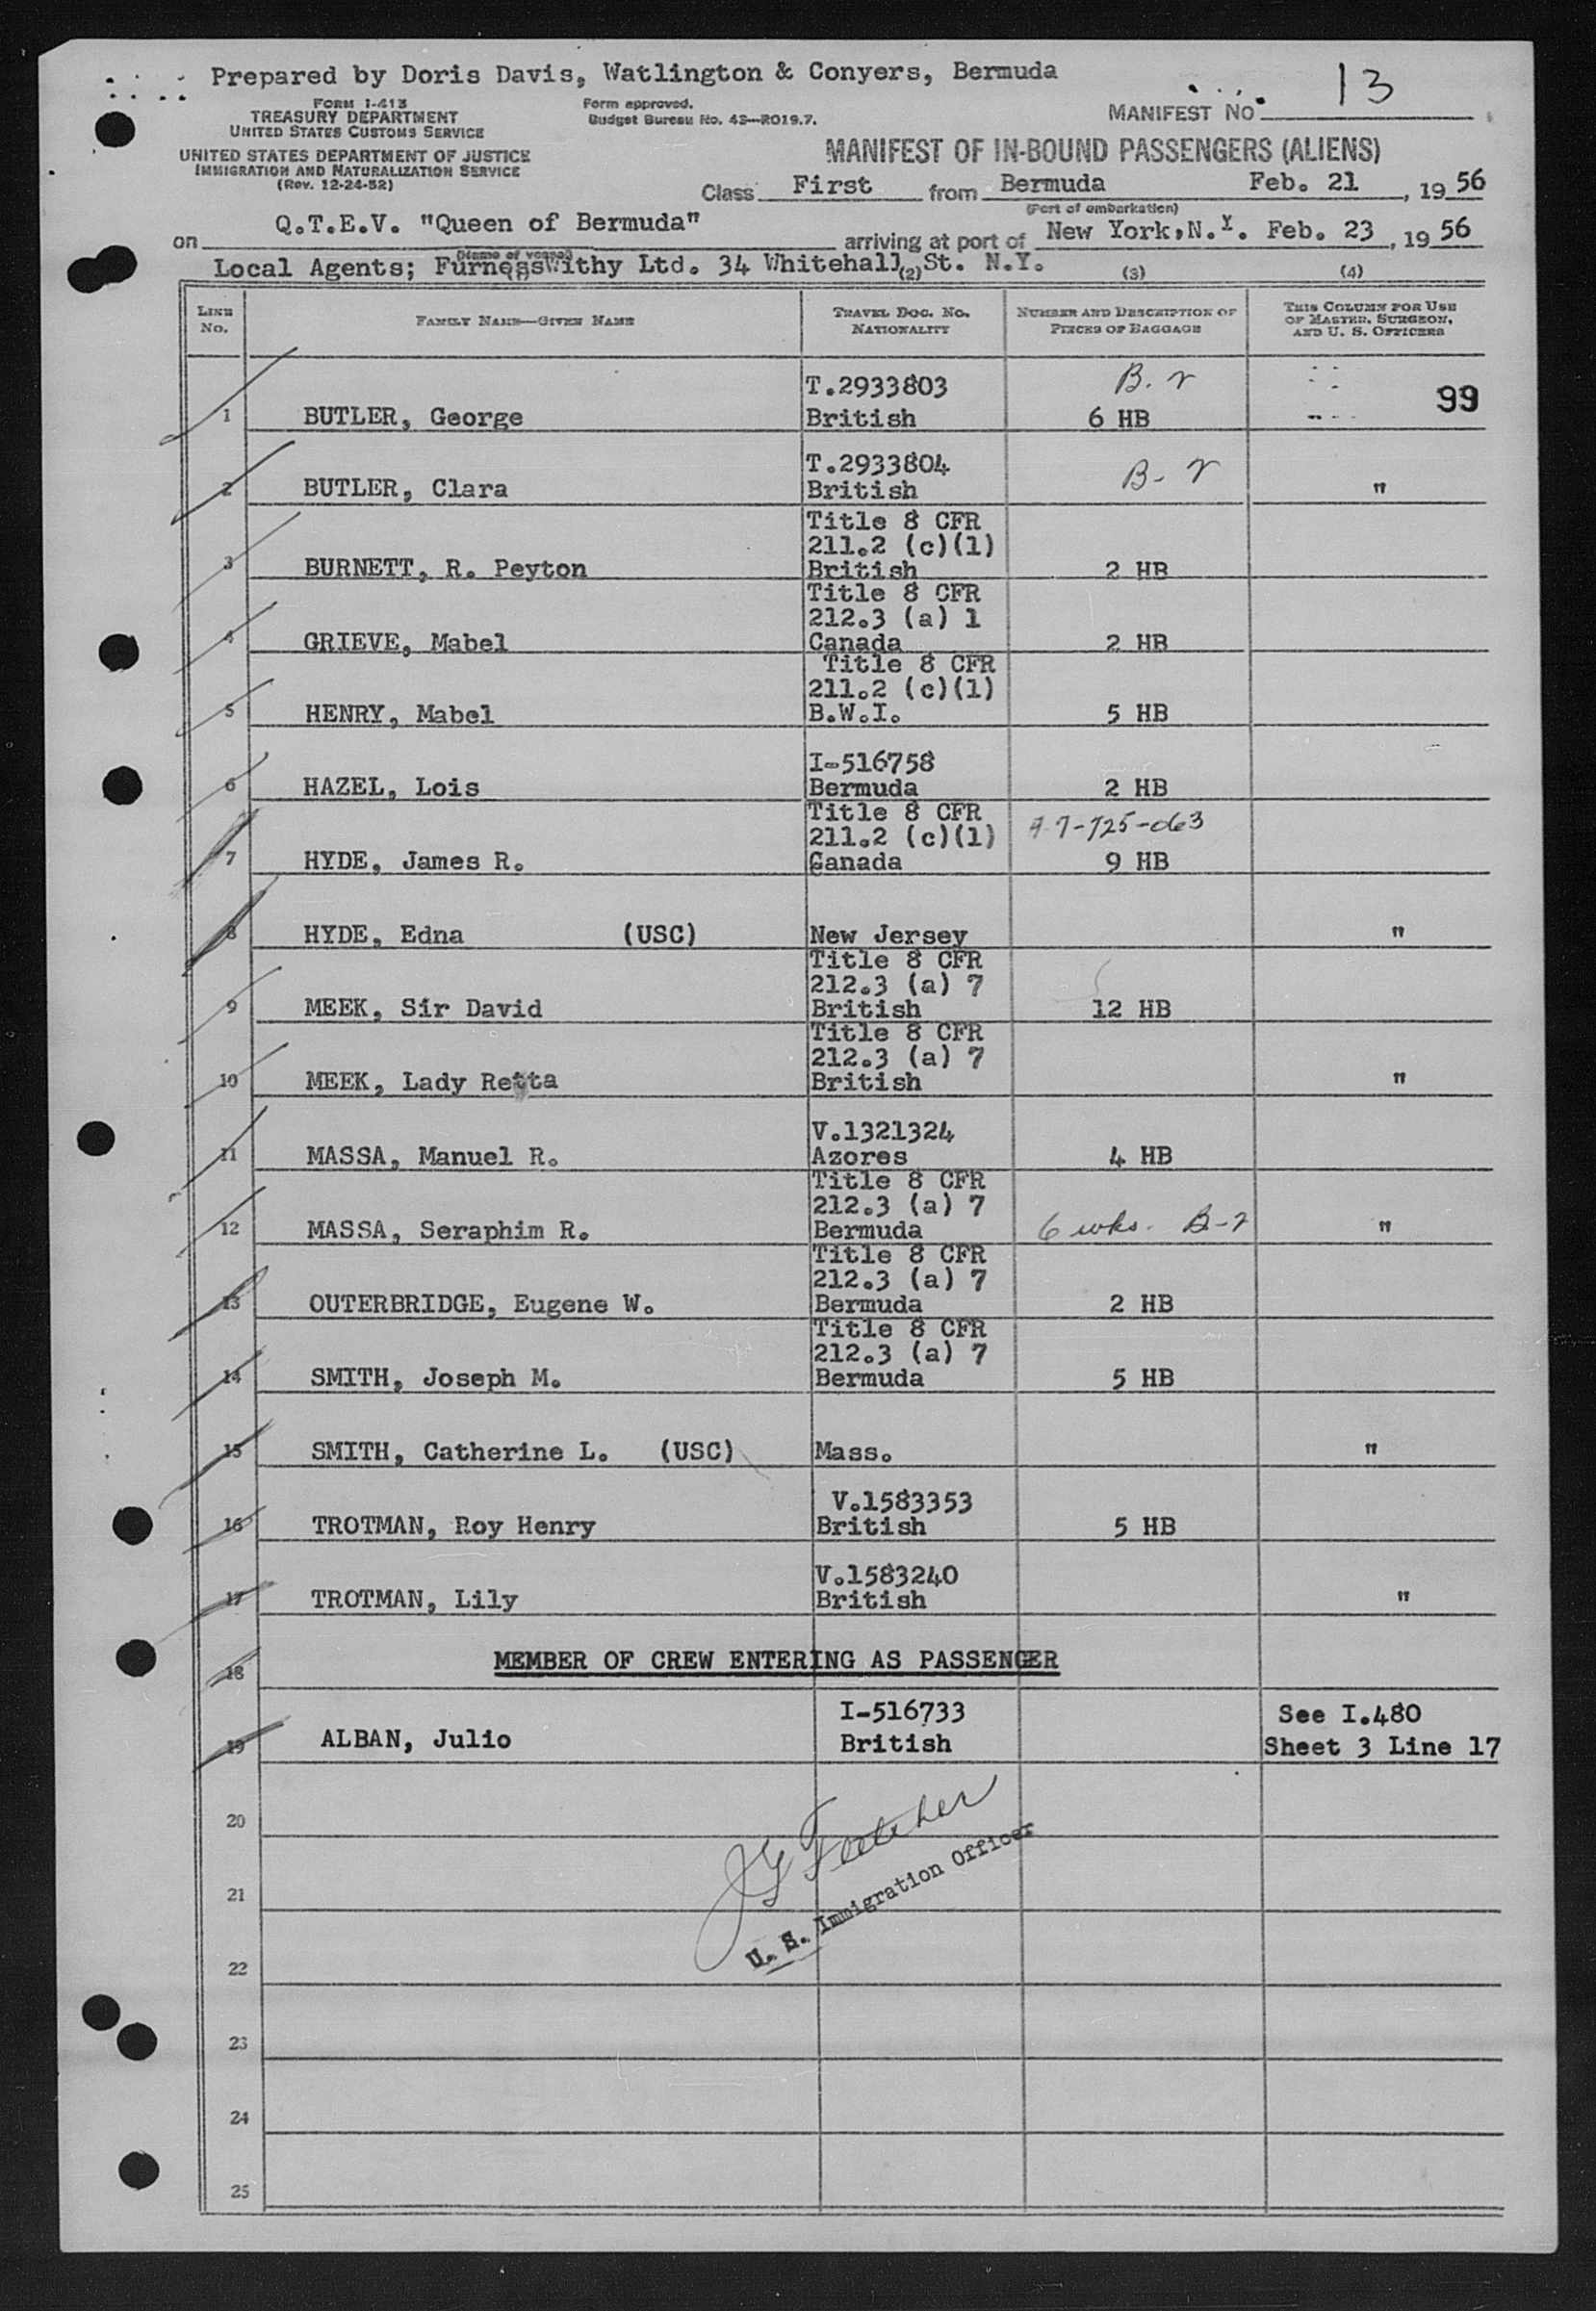 Prepared by Doris Davis, Watlington & Conyers, Bermuda
13
FORM I-413
TREASURY DEPARTMENT
UNITED STATES CUSTOMS SERVICE
Form approved.
Budget Bureau No. 43—R019.7.
MANIFEST No.
UNITED STATES DEPARTMENT OF JUSTICE
IMMIGRATION AND NATURALIZATION SERVICE
(Rev. 12-24-52)
MANIFEST OF IN-BOUND PASSENGERS (ALIENS)
Class First from Bermuda Feb. 21, 1956
(Port of embarkation)
on Q.T.E.V. "Queen of Bermuda" arriving at port of New York, N.Y. Feb. 23, 1956
(Name of vessel)
Local Agents; Furness Withy Ltd. 34 Whitehall St. N.Y.
(2) (3) (4)
LINE No. FAMILY NAME—GIVEN NAME TRAVEL DOC. NO. NATIONALITY NUMBER AND DESCRIPTION OF PIECES OF BAGGAGE THIS COLUMN FOR USE OF MASTER, SURGEON, AND U. S. OFFICERS
T.2933803 B-2
99
1 BUTLER, George British 6 HB
T.2933804 B-2
2 BUTLER, Clara British "
Title 8 CFR
211.2 (c)(1)
3 BURNETT, R. Peyton British 2 HB
Title 8 CFR
212.3 (a) 1
4 GRIEVE, Mabel Canada 2 HB
Title 8 CFR
211.2 (c)(1)
5 HENRY, Mabel B.W.I. 5 HB
I-516758
6 HAZEL, Lois Bermuda 2 HB
Title 8 CFR
211.2 (c)(1) A-7-725-063
7 HYDE, James R. Canada 9 HB
8 HYDE, Edna (USC) New Jersey "
Title 8 CFR
212.3 (a) 7
9 MEEK, Sir David British 12 HB
Title 8 CFR
212.3 (a) 7
10 MEEK, Lady Retta British "
V.1321324
11 MASSA, Manuel R. Azores 4 HB
Title 8 CFR
212.3 (a) 7
12 MASSA, Seraphim R. Bermuda 6 wks. B-2 "
Title 8 CFR
212.3 (a) 7
13 OUTERBRIDGE, Eugene W. Bermuda 2 HB
Title 8 CFR
212.3 (a) 7
14 SMITH, Joseph M. Bermuda 5 HB
15 SMITH, Catherine L. (USC) Mass. "
V.1583353
16 TROTMAN, Roy Henry British 5 HB
V.1583240
17 TROTMAN, Lily British "
18 MEMBER OF CREW ENTERING AS PASSENGER
I-516733 See I.480
19 ALBAN, Julio British Sheet 3 Line 17
20
J G Fletcher
21
U. S. Immigration Officer
22
23
24
25